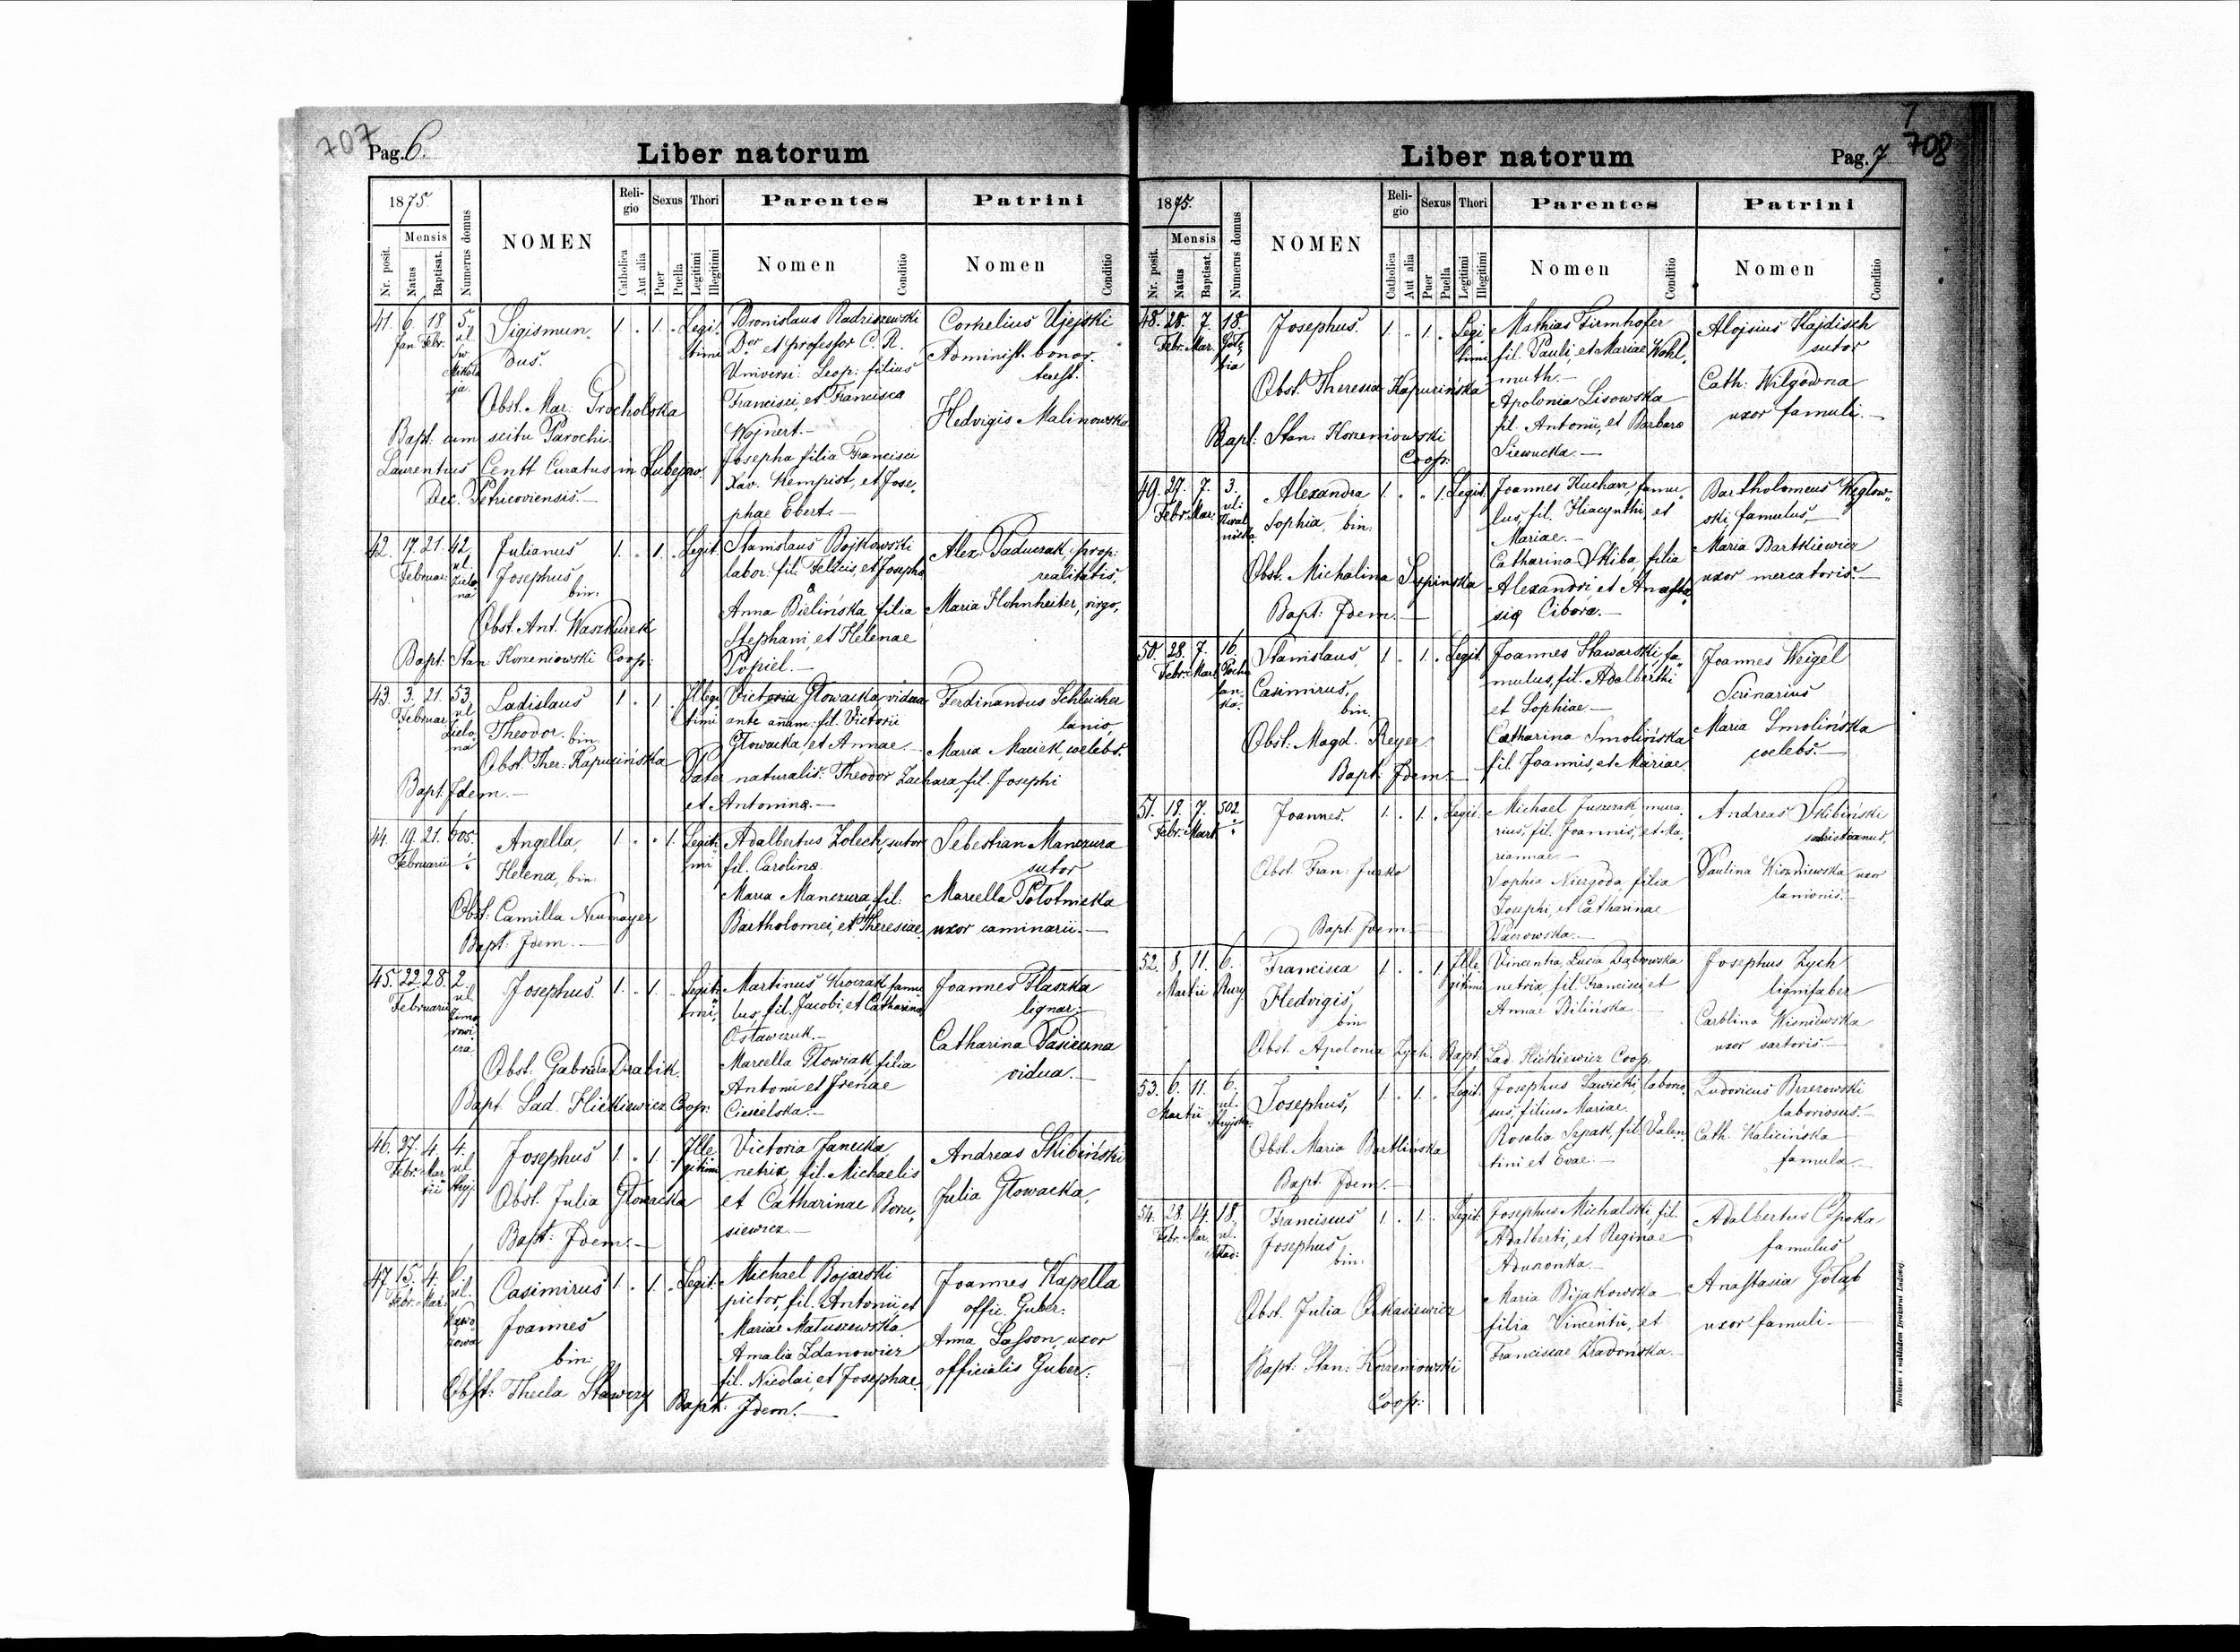 707
Pag. 6.
Liber natorum
1875
Mensis
Nr. posit.
Natus
Baptisat.
Numerus domus
NOMEN
Religio
Catholica
Aut alia
Sexus
Puer
Puella
Thori
Legitimi
Illegitimi
Parentes
Nomen
Conditio
Patrini
Nomen
Conditio
41. 6. 18 5. Sigismun- 1 . 1 . Legi- Bronislaus Radziszewski Cornelius Ujejski
Jan. Febr. ul. dus. timi Dor et professor C. R. Administ. bonor.
św. Mikoła ja. Universi: Leop: filius terest.
Obst. Mar. Grocholska Francisci, et Francisca Hedvigis Malinowska
Bapt. cum scitu Parochi Wojnert.—
Laurentius Centt Curatus in Josepha filia Francisci
Dec. Xav. Kempist, et Jose-
phae Ebert.—
42. 17. 21. 42. Julianus 1. . 1. . Legit. Stanislaus Bojkowski Alex. Paduczak prop:
Februar. ul. Zielo na Josephus bin. labor. fil. Felicis, et Josepha realitatis,
& Anna Bielińska filia Maria Hohnheiter, virgo,
Obst. Ant. Waszkurek Stephani, et Helenae
Bapt: Stan: Korzeniowski Coop: Popiel.—
43. 3. 21. 53. Ladislaus 1 . 1 . Illegi Victoria Głowacka, vidua Ferdinandus Schleicher
Februar. ul Zielo na Theodor. bin. timi ante anam: fil. Victorii lanio,
Głowacka, et Annae.— Maria Maciek, coelebs.
Obst. Ther: Kapucińska Pater naturalis: Theodor Zachara, fil. Josephi
Bapt. Idem.— et Antonina.—
44. 19. 21. 605. Angella, 1. . . 1. Legiti Adalbertus Zolech, sutor Sebestian Manczura
Februarii Helena, bin. mi fil. Carolina sutor
Maria Manczura, fil. Marcella Płotnicka
Obst: Camilla Neumayer Bartholomei, et Theresiae uxor caminarii.—
Bapt: Idem.—
45. 22. 28. 2. Josephus. 1. . 1. . Legiti Martinus Kroczak famu Joannes Flaszka
Februarii ul. Zimo rowi cza mi, lus, fil. Jacobi, et Catharina lignar.—
Ostawczuk.— Catharina Pasieczna
Marcella Głowiak, filia vidua.—
Obst. Gabriela Drabik. Antonii et Irenae
Bapt. Lad. Hickiewicz Coop: Ciesielska.—
46. 27. 4. 4. Josephus 1. . 1. . Ille Victoria Janecka, Andreas Skibiński
Febr. Mar tii ul Stryj. gitimi netrix, fil. Michaelis Julia Głowacka,
Obst. Julia Głowacka et Catharinae Boru-
Bapt: Idem.— siewicz.—
47. 15. 4. 6. Casimirus 1. . 1. . Legit. Michael Bojarski Joannes Kapella
Febr. Mar. ul. Joannes pictor, fil. Antonii, et offic. Guber:
bin: Mariae Matuszewska. Anna Sasson, uxor
Amalia Zdanowicz officialis Guber:
fil. Nicolai, et Josephae.
Obst: Thecla Stawczy Bapt: Idem.—
7
708
Liber natorum
Pag. 7
1875.
Mensis
Nr. posit.
Natus
Baptisat.
Numerus domus
NOMEN
Religio
Catholica
Aut alia
Sexus
Puer
Puella
Thori
Legitimi
Illegitimi
Parentes
Nomen
Conditio
Patrini
Nomen
Conditio
48. 28. 7. 18. Josephus. 1. . 1. . Legi Mathias Firmhofer Alojsius Hajdisch
Febr. Mar. Gołę bia timi fil. Pauli, et Mariae Wohl- sutor
muth.— Cath: Wilgówna
Obst. Theresia Kapucińska Apolonia Lisowska uxor famuli.—
fil. Antonii, et Barbara
Bapt: Stan: Korzeniowski Coop: Siewucka.—
49. 27. 7. 3. Alexandra 1. . . 1. Legit. Joannes Kuchar, famu- Bartholomeus Węglow-
Febr. Mar. ul. Sophia, bin. lus, fil. Hiacynthi, et ski, famulus,—
Mariae.— Maria Bartkiewicz
Obst. Michalina Catharina Skiba, filia uxor mercatoris.—
Alexandri, et Anasta-
Bapt: Idem.— sia Cibora.—
50. 28. 7. 16. Stanislaus, 1 . 1. . Legit. Joannes Sławarski, fa- Joannes Weigel
Febr. Mart. Casimirus, mulus, fil. Adalberthi Scrinarius
bin. et Sophiae.— Maria Smolińska
Obst: Magd. Reyer. Catharina Smolińska coelebs.—
Bapt: Idem.— fil. Joannis, et Mariae.
51. 18. 7. 502 Joannes. 1. . 1. . Legit: Michael Juszczak, mura Andreas Skibiński
Febr. Mart. rius, fil. Joannis, et Ma-
riannae.— Paulina Wiszniewska uxor
Obst. Fran: Jurko Sophia Niezgoda, filia lanionis.—
Josephi, et Catharinae
Bapt: Idem.—
52. 8. 11. 6. Francisca 1 . . 1. Ille Vincentia Lucia Dąbrowska Josephus Zych
Martii Hedvigis, gitimi netrix, fil. Francisci, et lignifaber
bin. Annae Bilińska Carolina Wisniewska
Obst. Apolonia Zych Bapt. Lad. Hickiewicz Coop. uxor sartoris.—
53. 6. 11. 6. Josephus, 1. . 1. . Legit. Josephus Sawicki, laborio Ludovicus Brzezowski
Martii ul. Stryjska sus, filius Mariae. laboriosus.—
Obst. Maria Bartlińska Rosalia Szpak, fil. Valen- Cath. Kalicińska
Bapt: Idem.— tini et Evae.— famula.—
54. 28. 14. 18. Franciscus 1. . 1. . Legit. Josephus Michalski, fil. Adalbertus Cepoka
Febr. Mar. ul. Josephus bin. Adalberti, et Reginae famulus
Maria Bijakowska Anastasia Gołąb
Obst. Julia filia Vincentii, et uxor famuli.—
Bapt: Stan: Korzeniowski Coop: Franciscae